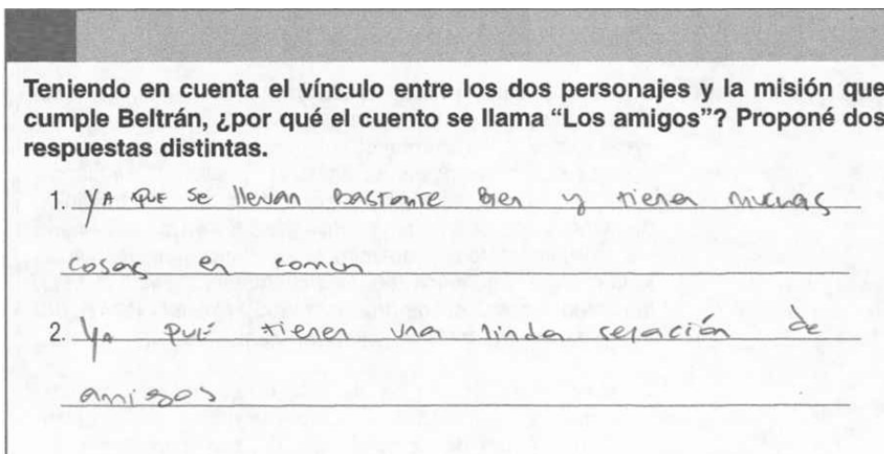 Teniendo en cuenta el vínculo entre los dos personajes y la misión que
cumple Beltrán, ¿por qué el cuento se llama “Los amigos”? Proponé dos
respuestas distintas.
1. YA QUE se llevan BASTANTE bien y tienen muchas
cosas en comun
2. YA QUE tienen una linda relación de
amigos